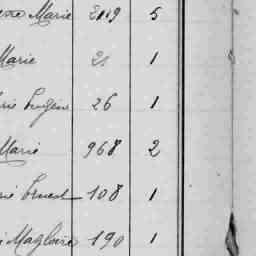 Marie 2119 5
Marie 21 1
Eugène 26 1
Marie 968 2
Ernest 108 1
Magloire 190 1